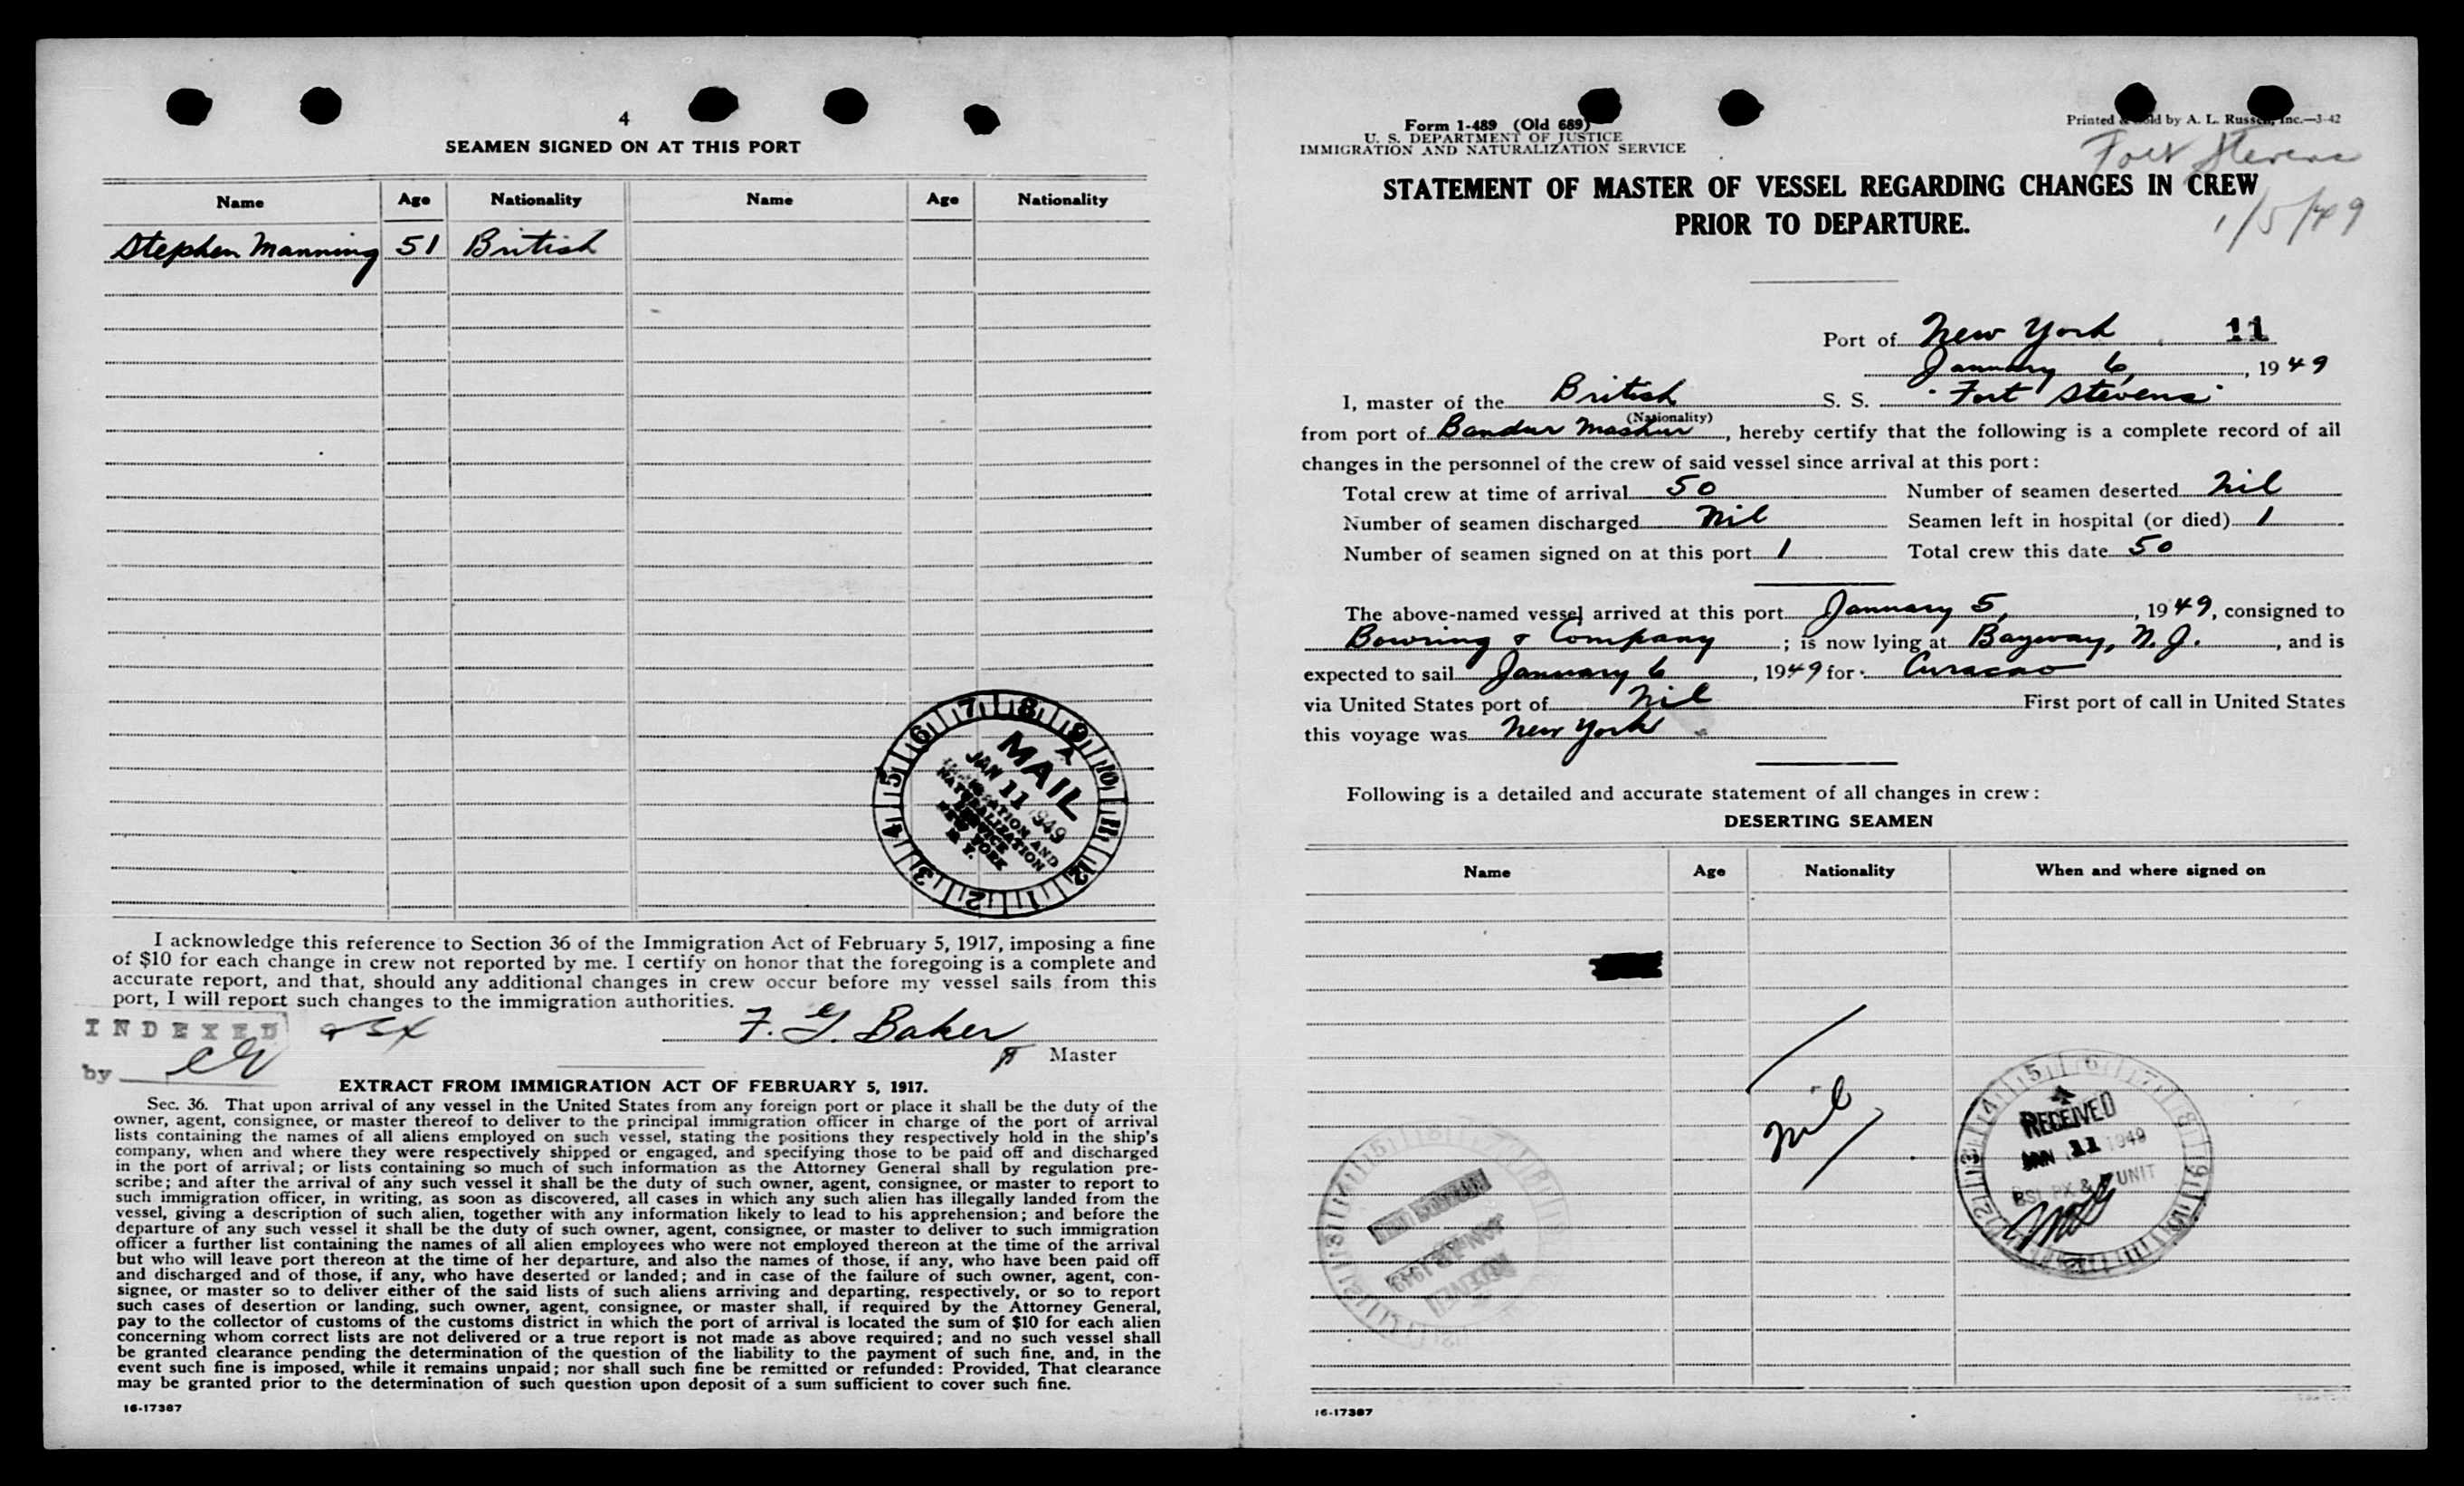 4
SEAMEN SIGNED ON AT THIS PORT
Name Age Nationality Name Age Nationality
Stephen Manning 51 British
MAIL
JAN 11 1949
IMMIGRATION AND
NATURALIZATION
SERVICE
NEW YORK
N. Y.
I acknowledge this reference to Section 36 of the Immigration Act of February 5, 1917, imposing a fine
of $10 for each change in crew not reported by me. I certify on honor that the foregoing is a complete and
accurate report, and that, should any additional changes in crew occur before my vessel sails from this
port, I will report such changes to the immigration authorities.
INDEXED
by
F. G. Baker
Master
EXTRACT FROM IMMIGRATION ACT OF FEBRUARY 5, 1917.
Sec. 36. That upon arrival of any vessel in the United States from any foreign port or place it shall be the duty of the
owner, agent, consignee, or master thereof to deliver to the principal immigration officer in charge of the port of arrival
lists containing the names of all aliens employed on such vessel, stating the positions they respectively hold in the ship's
company, when and where they were respectively shipped or engaged, and specifying those to be paid off and discharged
in the port of arrival; or lists containing so much of such information as the Attorney General shall by regulation pre-
scribe; and after the arrival of any such vessel it shall be the duty of such owner, agent, consignee, or master to report to
such immigration officer, in writing, as soon as discovered, all cases in which any such alien has illegally landed from the
vessel, giving a description of such alien, together with any information likely to lead to his apprehension; and before the
departure of any such vessel it shall be the duty of such owner, agent, consignee, or master to deliver to such immigration
officer a further list containing the names of all alien employees who were not employed thereon at the time of the arrival
but who will leave port thereon at the time of her departure, and also the names of those, if any, who have been paid off
and discharged and of those, if any, who have deserted or landed; and in case of the failure of such owner, agent, con-
signee, or master so to deliver either of the said lists of such aliens arriving and departing, respectively, or so to report
such cases of desertion or landing, such owner, agent, consignee, or master shall, if required by the Attorney General,
pay to the collector of customs of the customs district in which the port of arrival is located the sum of $10 for each alien
concerning whom correct lists are not delivered or a true report is not made as above required; and no such vessel shall
be granted clearance pending the determination of the question of the liability to the payment of such fine, and, in the
event such fine is imposed, while it remains unpaid; nor shall such fine be remitted or refunded: Provided, That clearance
may be granted prior to the determination of such question upon deposit of a sum sufficient to cover such fine.
16-17387
Form 1-489 (Old 689)
U. S. DEPARTMENT OF JUSTICE
IMMIGRATION AND NATURALIZATION SERVICE
Printed & Sold by A. L. Russell, Inc.—3-42
Fort Stevens
1/5/49
STATEMENT OF MASTER OF VESSEL REGARDING CHANGES IN CREW
PRIOR TO DEPARTURE.
Port of New York 11
January 6, 1949
I, master of the British S. S. "Fort Stevens"
(Nationality)
from port of Bandur Mashur, hereby certify that the following is a complete record of all
changes in the personnel of the crew of said vessel since arrival at this port:
Total crew at time of arrival 50 Number of seamen deserted Nil
Number of seamen discharged Nil Seamen left in hospital (or died) 1
Number of seamen signed on at this port 1 Total crew this date 50
The above-named vessel arrived at this port January 5, 1949, consigned to
Bowring & Company; is now lying at Bayway, N. J., and is
expected to sail January 6, 1949 for Curacao
via United States port of Nil First port of call in United States
this voyage was New York
Following is a detailed and accurate statement of all changes in crew:
DESERTING SEAMEN
Name Age Nationality When and where signed on
Nil
RECEIVED
JAN 11 1949
UNIT
RECEIVED
16-17387